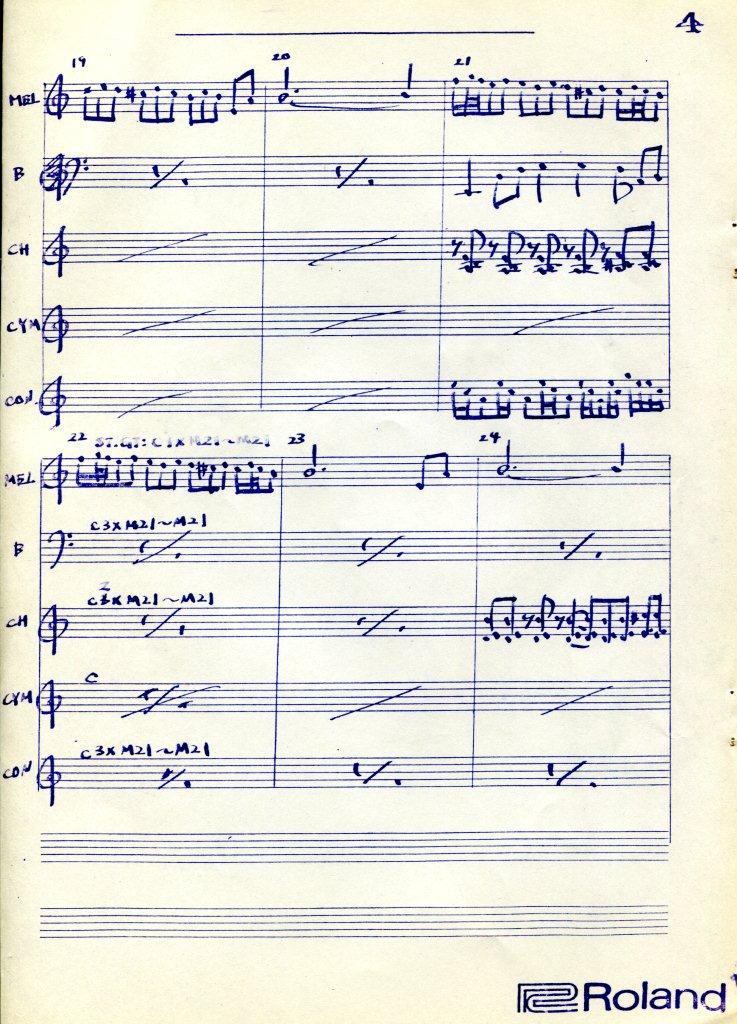 4
19 20 21
MEL
B
CH
CYM
CON
22 ST.GT: C1XM21~M21 23 24
MEL
C3XM21~M21
B
C3XM21~M21
CH
C
CYM
C3XM21~M21
CON
Roland